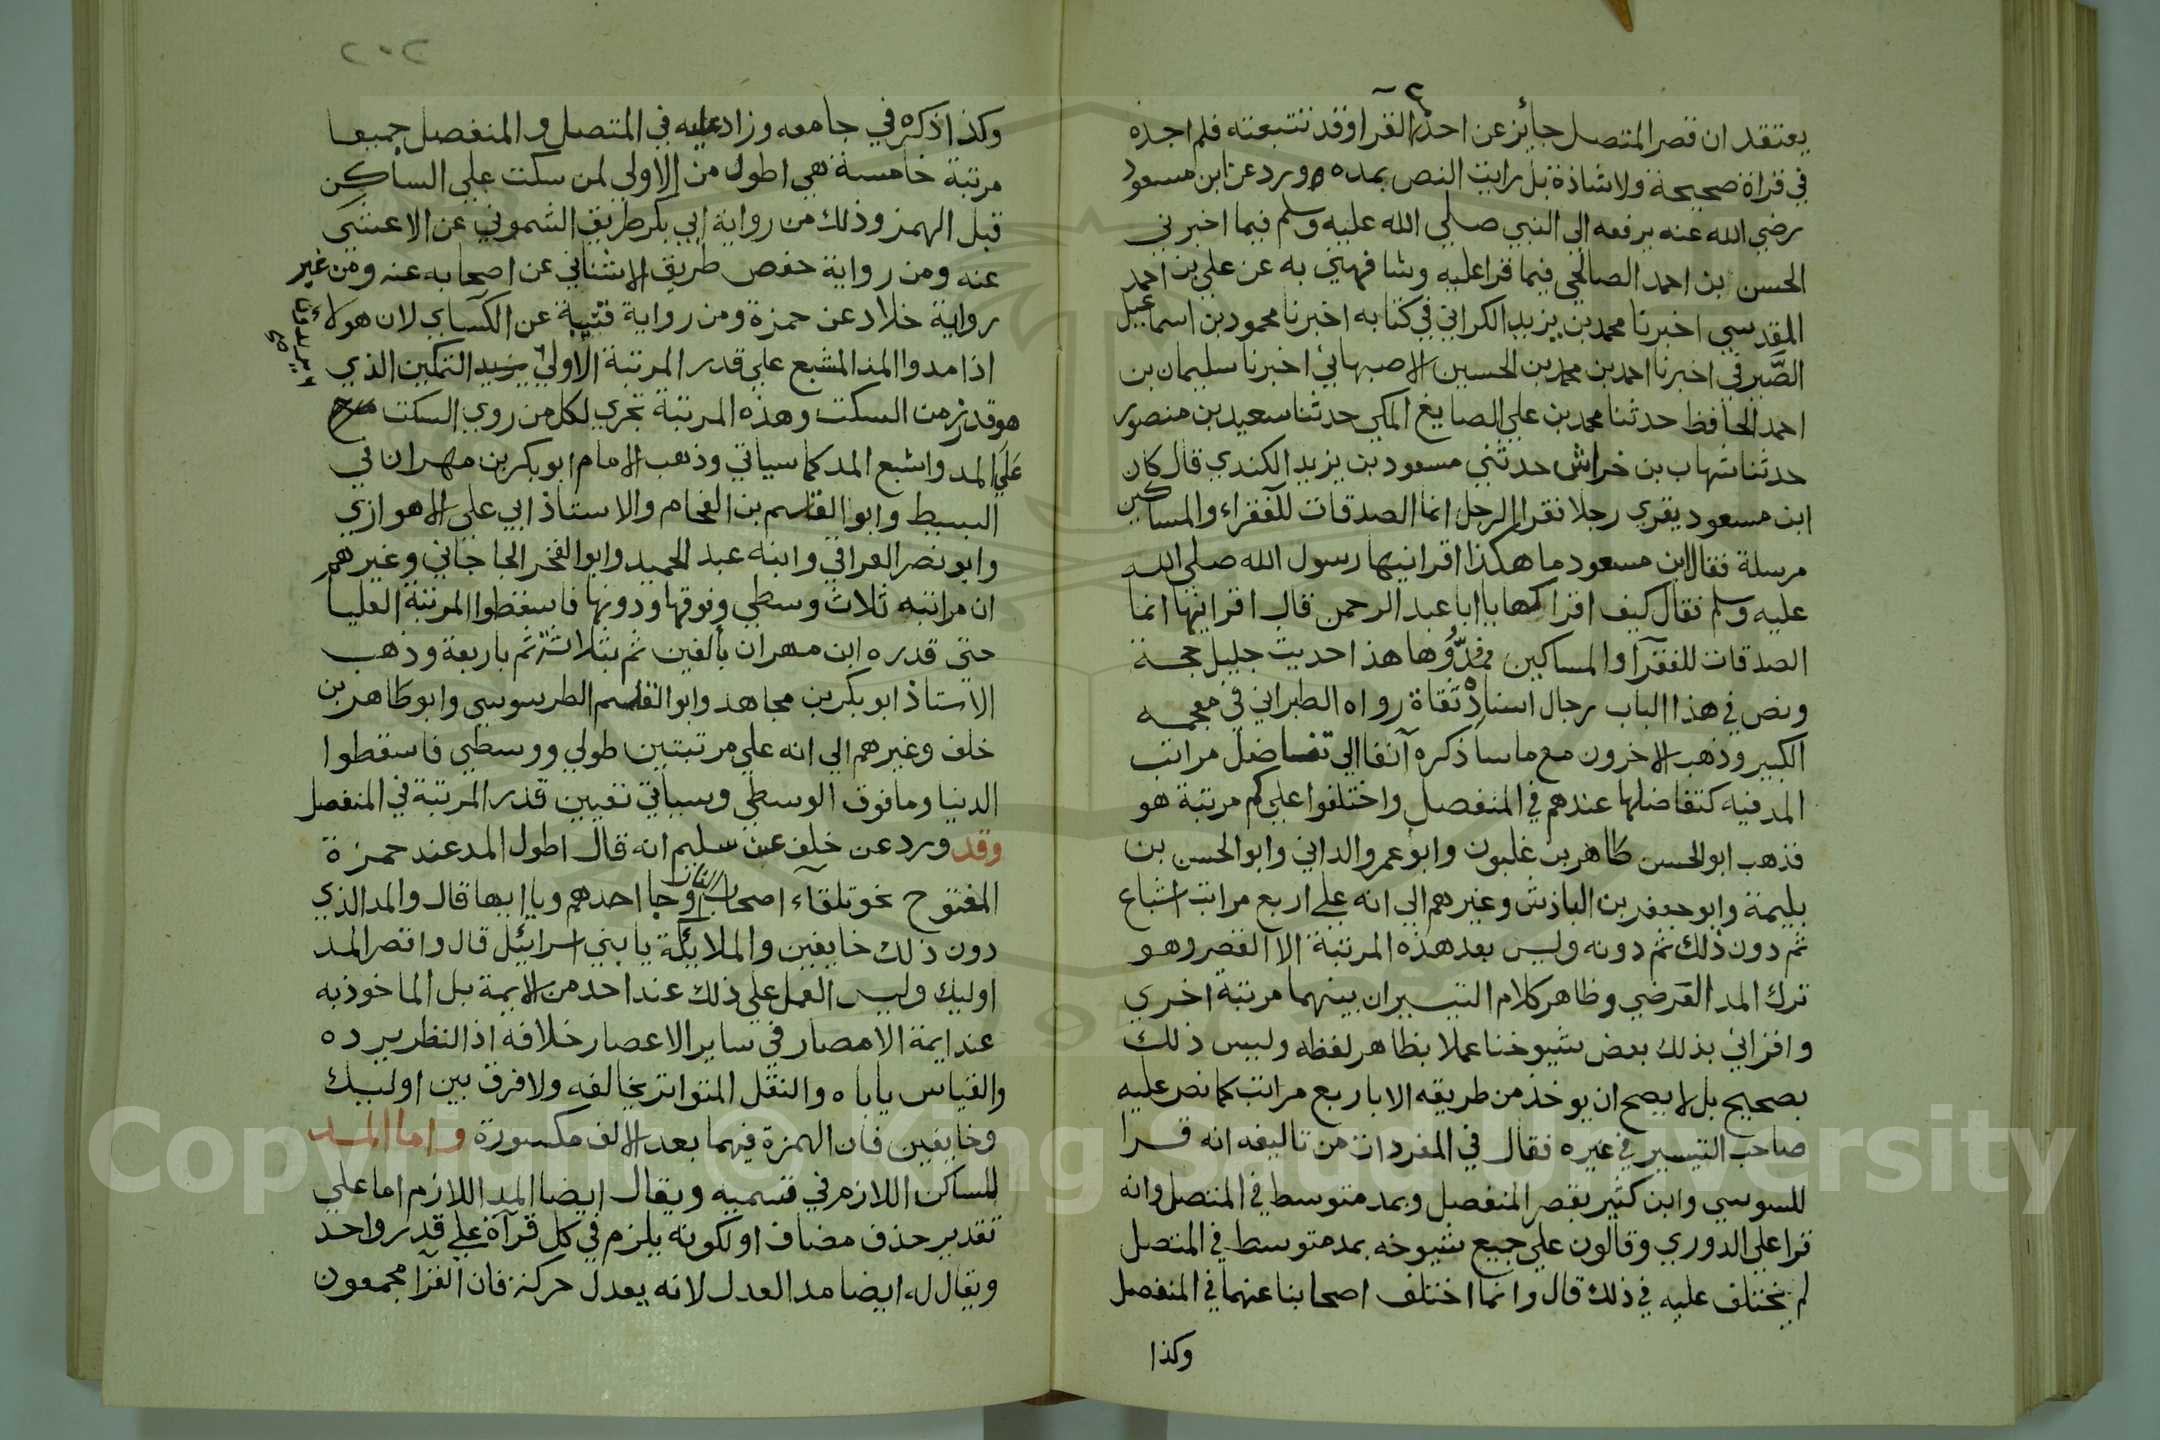 يعتقد ان قصر المتصل جايز عن احد من القرآ وقد تتبعته فلم اجده
في قراة صحيحة ولا شاذة بل رايت النص بمده وورد عن ابن مسعود
رضي الله عنه يرفعه الى النبي صلى الله عليه وسلم فيما اخبرني
الحسن بن احمد الصالحي فيما قرا عليه وشافهني به عن علي بن احمد
المقدسي اخبرنا محمد بن يزيد الكراني في كتابه اخبرنا محمود بن اسماعيل
الصَّيرفي اخبرنا احمد بن محمد بن الحسين الاصبهاني اخبرنا سليمان بن
احمد الحافظ حدثنا محمد بن علي الصايغ المكي حدثنا سعيد بن منصور
حدثنا شهاب بن خراش حدثني مسعود بن يزيد الكندي قال كان
ابن مسعود يقري رجلا فقرا الرجل انما الصدقات للفقراء والمساكين
مرسلة فقال ابن مسعود ما هكذا اقرانيها رسول الله صلى الله
عليه وسلم فقال كيف اقراكها يا ابا عبد الرحمن قال اقرانيها انما
الصدقات للفقرآ والمساكين فمدُّوها هذا حديث جليل حجة
ونص في هذا الباب رجال اسناده ثقاة رواه الطبراني في معجمه
الكبير وذهب الاخرون مع ما ساذكره آنفا الي تفاضل مراتب
المد فيه كتفاضلها عندهم في المنفصل واختلفوا علي كم مرتبة هو
فذهب ابو الحسن طاهر بن غلبون وابو عمرو الداني وابو الحسن بن
بليمة وابو جعفر بن الباذش وغيرهم الي انه علي اربع مراتب اشباع
ثم دون ذلك ثم دونه وليس بعد هذه المرتبة الا القصر وهو
ترك المد العرضي وظاهر كلام التيسير ان بينهما مرتبة اخري
واقراني بذلك بعض شيوخنا عملا بظاهر لفظه وليس ذلك
بصحيح بل لا يصح ان يوخذ من طريقه الا باربع مراتب كما نص عليه
صاحب التيسير في غيره فقال في المفردات من تاليفه انه قرا
للسوسي وابن كثير بقصر المنفصل وبمد متوسط في المتصل وانه
قرا علي الدوري وقالون علي جميع شيوخه بمد متوسط في المتصل
لم يختلف عليه في ذلك قال وانما اختلف اصحابنا عنهما في المنفصل
وكذا
٢٠٢
وكذا ذكره في جامعه وزاد عليه في المتصل والمنفصل جميعا
مرتبة خامسة هي اطول من الاولي لمن سكت علي الساكن
قبل الهمز وذلك من رواية ابي بكر طريق الشموني عن الاعشي
عنه ومن رواية حفص طريق الاشناني عن اصحابه عنه ومن غير
رواية خلاد عن حمزة ومن رواية قتيبة عن الكسآي لان هولاء
اذا مدوا المد المشبع علي قدر المرتبة الاولي يزيد التمكين الذي
هو قدر زمن السكت وهذه المرتبة تجري لكل من روي السكت
علي المد واشبع المد كما سياتي وذهب الامام ابو بكر بن مهران في
البسيط وابو القاسم بن الفحام والاستاذ ابي علي الاهوازي
وابو نصر العراقي وابنه عبد الحميد وابو الفخر الجاجاني وغيرهم
ان مراتبه ثلاث وسطي وفوقها ودونها فاسقطوا المرتبة العليا
حتي قدره ابن مهران بالفين ثم بثلاثة ثم باربعة وذهب
الاستاذ ابو بكر بن مجاهد وابو القاسم الطرسوسي وابو طاهر بن
خلف وغيرهم الي انه علي مرتبتين طولي ووسطي فاسقطوا
الدنيا وما فوق الوسطي وسياتي تعيين قدر المرتبة في المنفصل
وقد ورد عن خلف عن سليم انه قال اطول المد عند حمزة
المفتوح نحو تلقآء اصحاب النار وجا احدهم ويا ايها قال والمد الذي
دون ذلك خايفين والملايكة يا بني اسرائيل قال واقصر المد
اوليك وليس العمل علي ذلك عند احد من الايمة بل الماخوذ به
عند ايمة الامصار في ساير الاعصار خلافه اذ النظر يرده
والقياس ياباه والنقل المتواتر يخالفه ولا فرق بين اوليك
وخايفين فان الهمزة فيهما بعد الالف مكسورة واما المد
للساكن اللازم في قسميه ويقال ايضا المد اللازم اما علي
تقدير حذف مضاف او لكونه يلزم في كل قرآة علي قدر واحد
ويقال له ايضا مد العدل لانه يعدل حركة فان القرآ مجمعون
Copyright © King Saud University